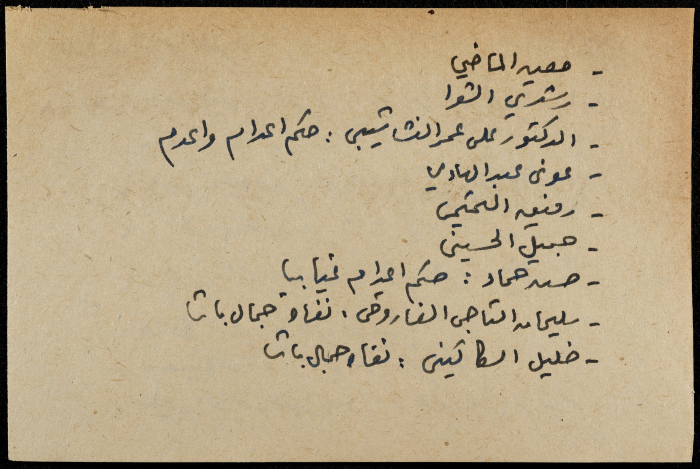 - معين الماضي
- رشدي الشوا
- الدكتور علي عمر النشاشيبي : حكم اعدام واعدم
- عوني عبد الهادي
- رفيق التميمي
- جميل الحسيني
- حسن حماد : حكم اعدام غيابيا
- سليمان التاجي الفاروقي : نفاه جمال باشا
- خليل السكاكيني : نفاه جمال باشا